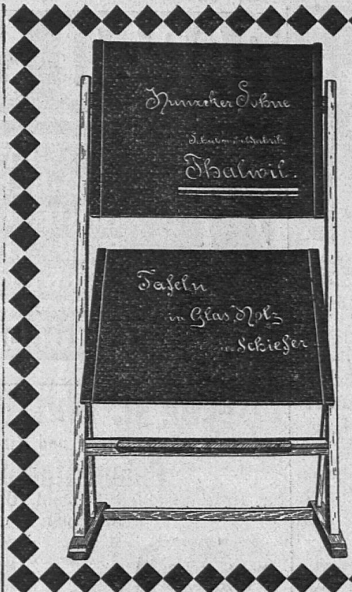 Hunziker Söhne
Schulmöbelfabrik
Thalwil.
Tafeln
in Glas, Holz
Schiefer